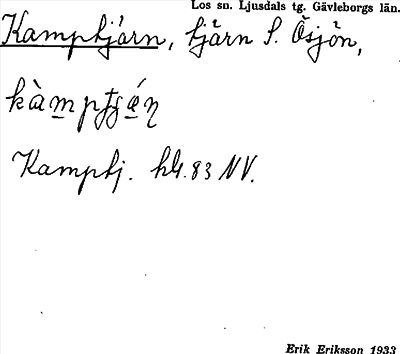 Los sn. Ljusdals tg. Gävleborgs län.
Kamptjärn, tjärn S. Ösjön,
Kamptj. hbl. 83 NV.
Erik Eriksson 1933